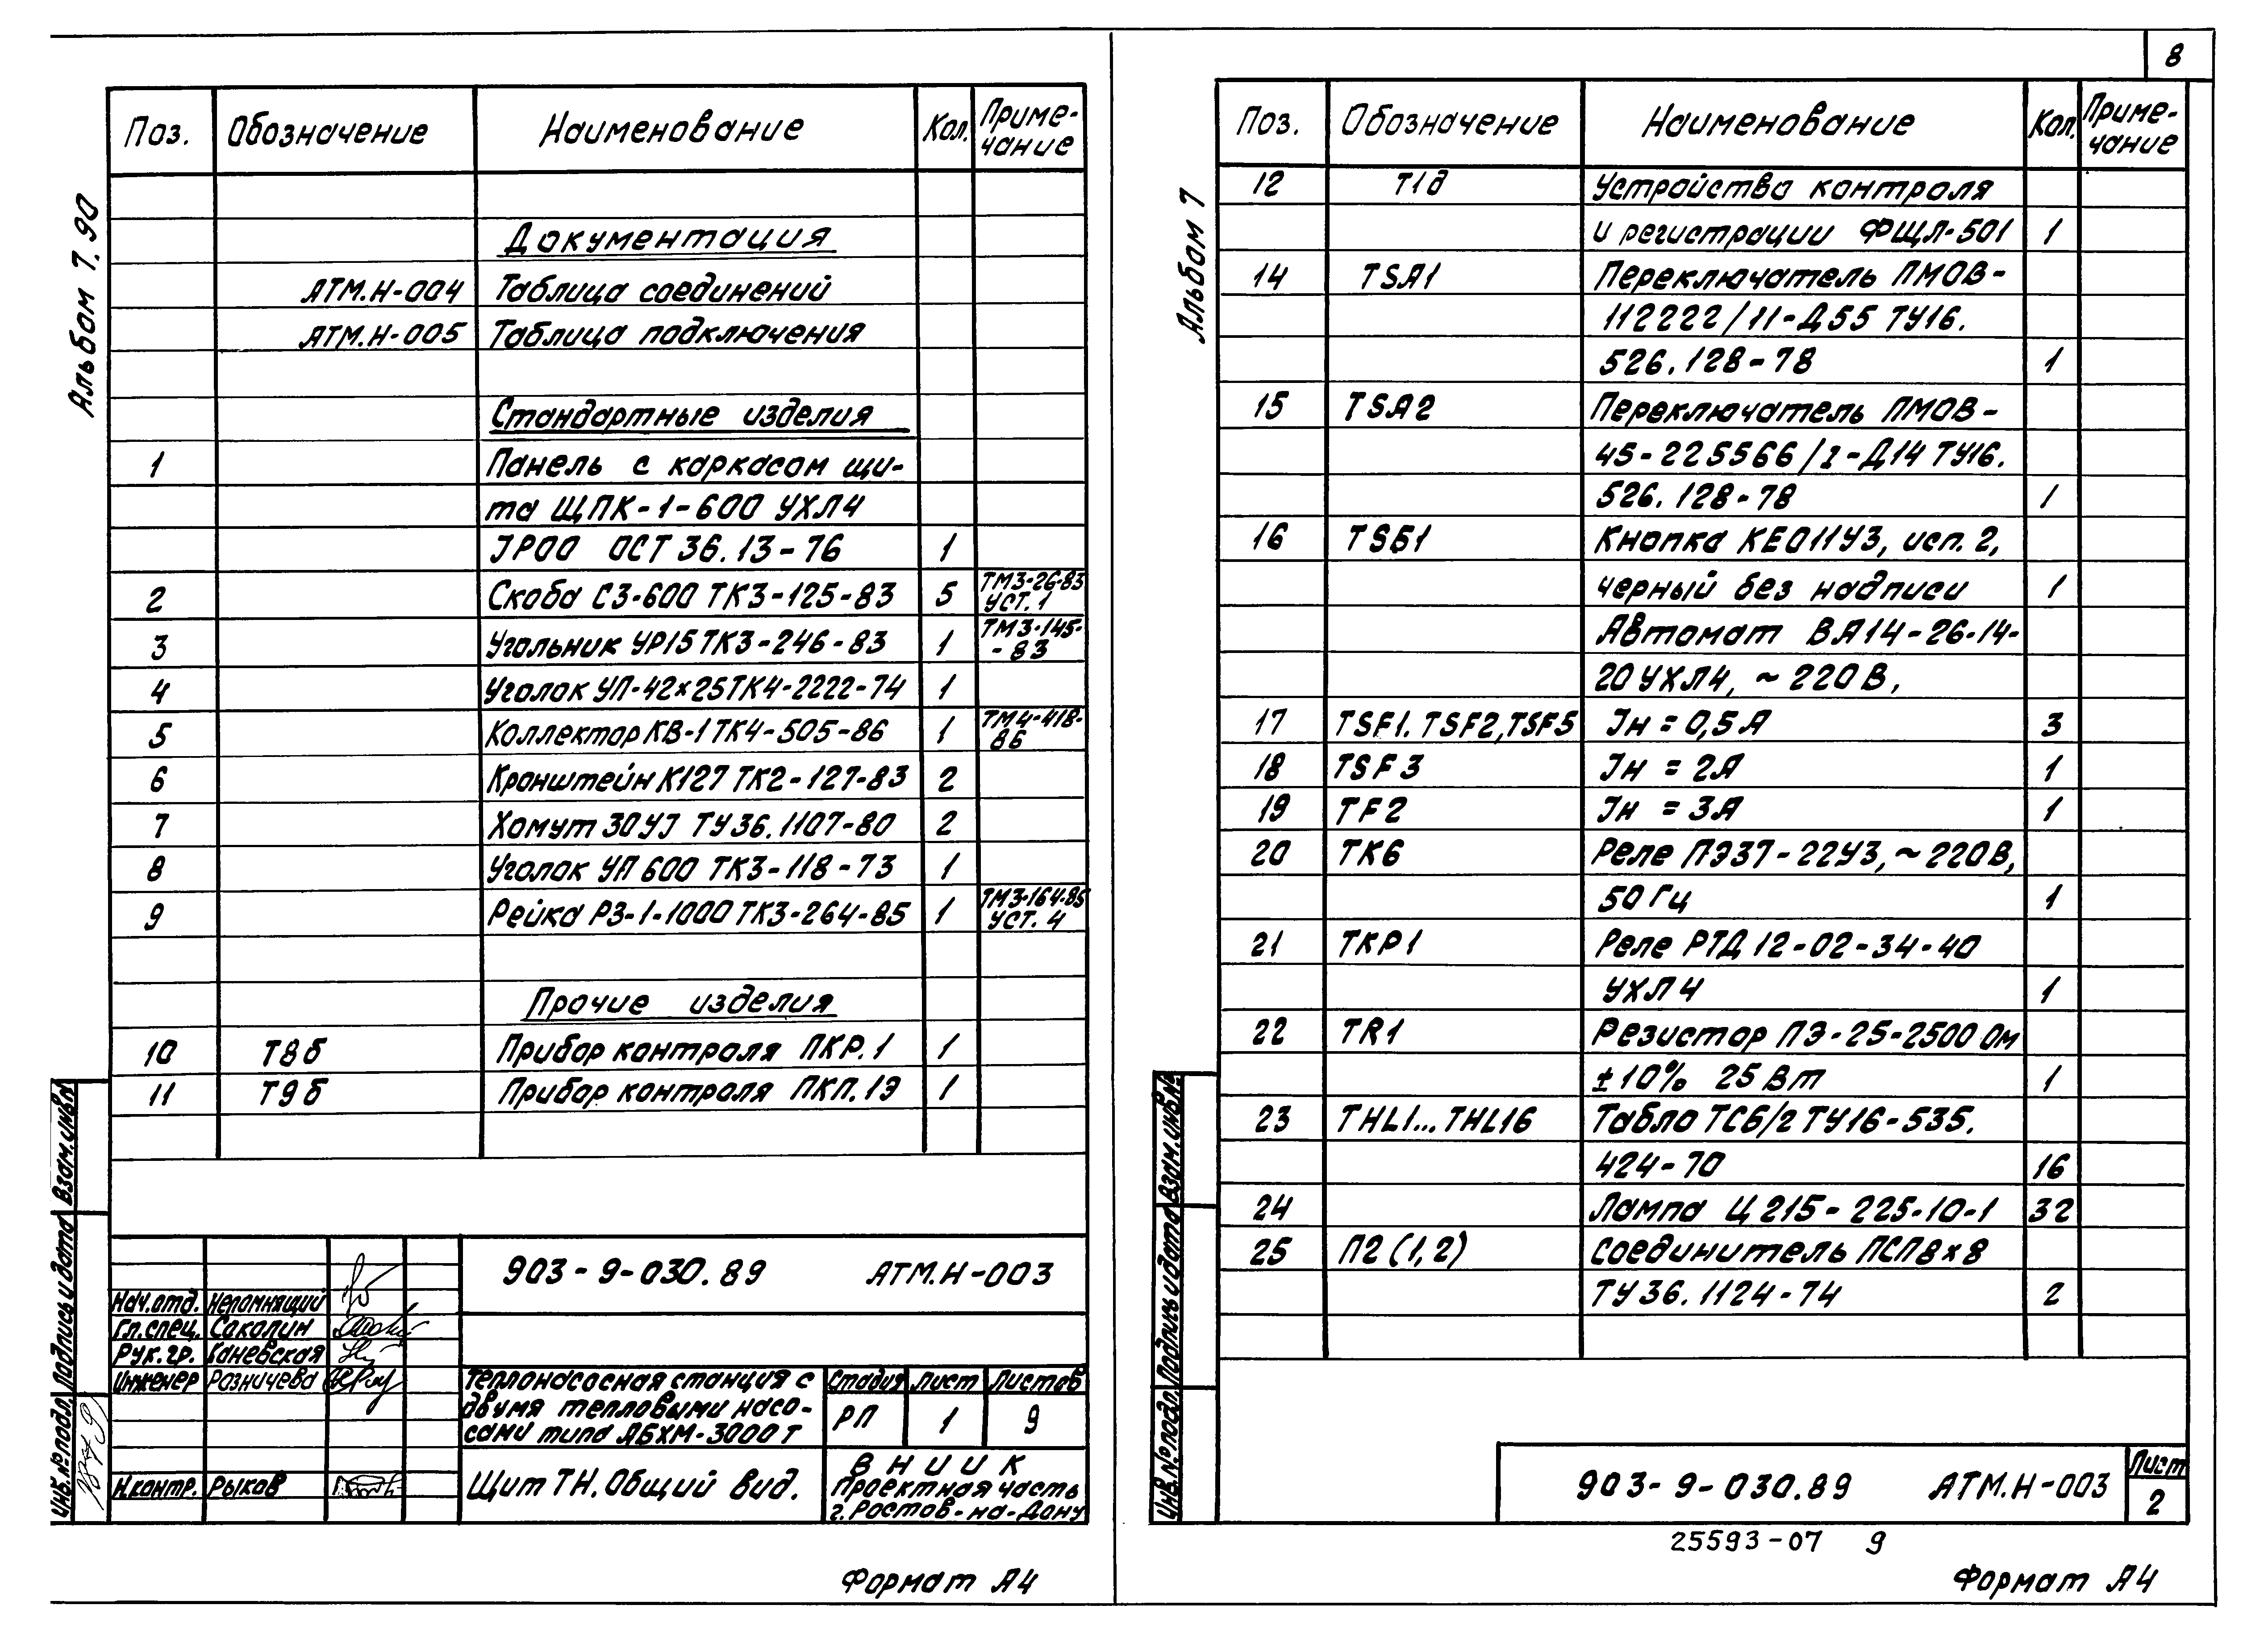 8
Альбом 7. 90
Поз. Обозначение Наименование Кол. Приме-
чание
Документация
АТМ.Н-004 Таблица соединений
АТМ.Н-005 Таблица подключения
Стандартные изделия
1 Панель с каркасом щи-
та ЩПК-1-600 УХЛ4
JР00 ОСТ 36.13-76 1
2 Скоба С3-600 ТК3-125-83 5 ТМ3-26-83
УСТ. 1
3 Угольник УР15 ТК3-246-83 1 ТМ3-145-
-83
4 Уголок УП-42х25 ТК4-2222-74 1
5 Коллектор КВ-1 ТК4-505-86 1 ТМ4-418-
86
6 Кронштейн К127 ТК2-127-83 2
7 Хомут 30УJ ТУ36.1107-80 2
8 Уголок УП 600 ТК3-118-73 1
9 Рейка Р3-1-1000 ТК3-264-85 1 ТМ3-164-85
УСТ. 4
Прочие изделия
10 Т8б Прибор контроля ПКР.1 1
11 Т9б Прибор контроля ПКП.1Э 1
903-9-030.89 АТМ.Н-003
Нач.отд. Непомнящий
Гл.спец. Соколин
Рук.гр. Каневская
Инженер Разничева
Н.контр. Рыков
Теплонасосная станция с
двумя тепловыми насо-
сами типа АБХМ-3000Т
Стадия Лист Листов
РП 1 9
Щит ТН. Общий вид.
ВНИИК
Проектная часть
г. Ростов-на-Дону
Инв.№подл. Подпись и дата Взам.инв.№
Формат А4
Альбом 7
Поз. Обозначение Наименование Кол. Приме-
чание
12 Т1д Устройство контроля
и регистрации ФЩЛ-501 1
14 TSA1 Переключатель ПМОВ-
112222/11-Д55 ТУ16.
526.128-78 1
15 TSA2 Переключатель ПМОВ-
45-225566/I-Д14 ТУ16.
526.128-78 1
16 TSБ1 Кнопка КЕ011У3, исп. 2,
черный без надписи 1
Автомат ВА14-26-14-
20 УХЛ4, ~220В,
17 TSF1. TSF2, TSF5 Jн = 0,5 А 3
18 TSF3 Jн = 2А 1
19 TF2 Jн = 3А 1
20 ТК6 Реле ПЭ37-22У3, ~220В,
50 Гц 1
21 ТКР1 Реле РТД 12-02-34-40
УХЛ4 1
22 TR1 Резистор ПЭ-25-2500 Ом
±10% 25 Вт 1
23 THL1...THL16 Табло ТСБ/2 ТУ16-535.
424-70 16
24 Лампа Ц215-225-10-1 32
25 П2 (1,2) Соединитель ПСП8х8
ТУ36.1124-74 2
903-9-030.89 АТМ.Н-003
Лист
2
Инв.№подл. Подпись и дата Взам.инв.№
25593-07 9
Формат А4